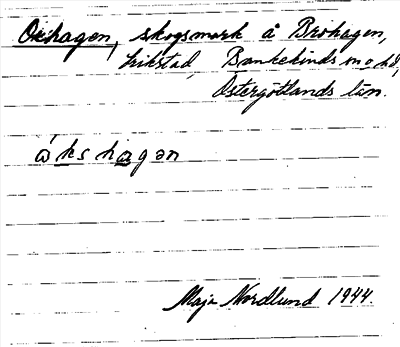 Oxhagen, skogsmark å Brohagen,
Grikstad, Bankekinds m o hd,
Östergötlands län.
åkshagən
Maja Nordlund 1944.